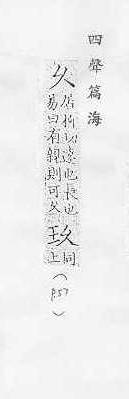 四聲篇海
久
居柳切遠也長也
易曰有親則可久
玖
同
上
(P57)